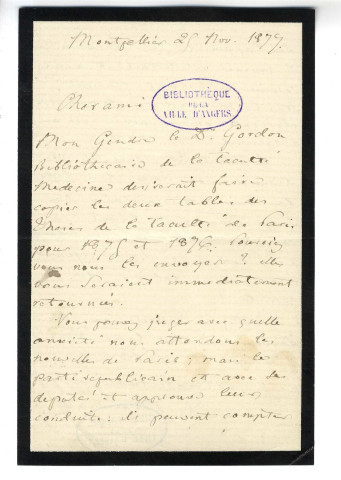 Montpellier 25 Nov. 1877.
Cher ami
BIBLIOTHÈQUE
DE LA
VILLE D'ANGERS
Mon Gendre le Dr Gordon,
Bibliothécaire de la faculté
Medecine desirerait faire
copier les deux tables des
Theses de la faculté de Paris
pour 1875 et 1876. Pourriez
vous nous les envoyer? elles
vous seraient immediatement
retournées.
Vous pouvez juger avec quelle
anxiété nous attendons les
nouvelles de Paris; mais le
parti republicain est avec ses
deputés et approuve leur
conduite: ils peuvent compter